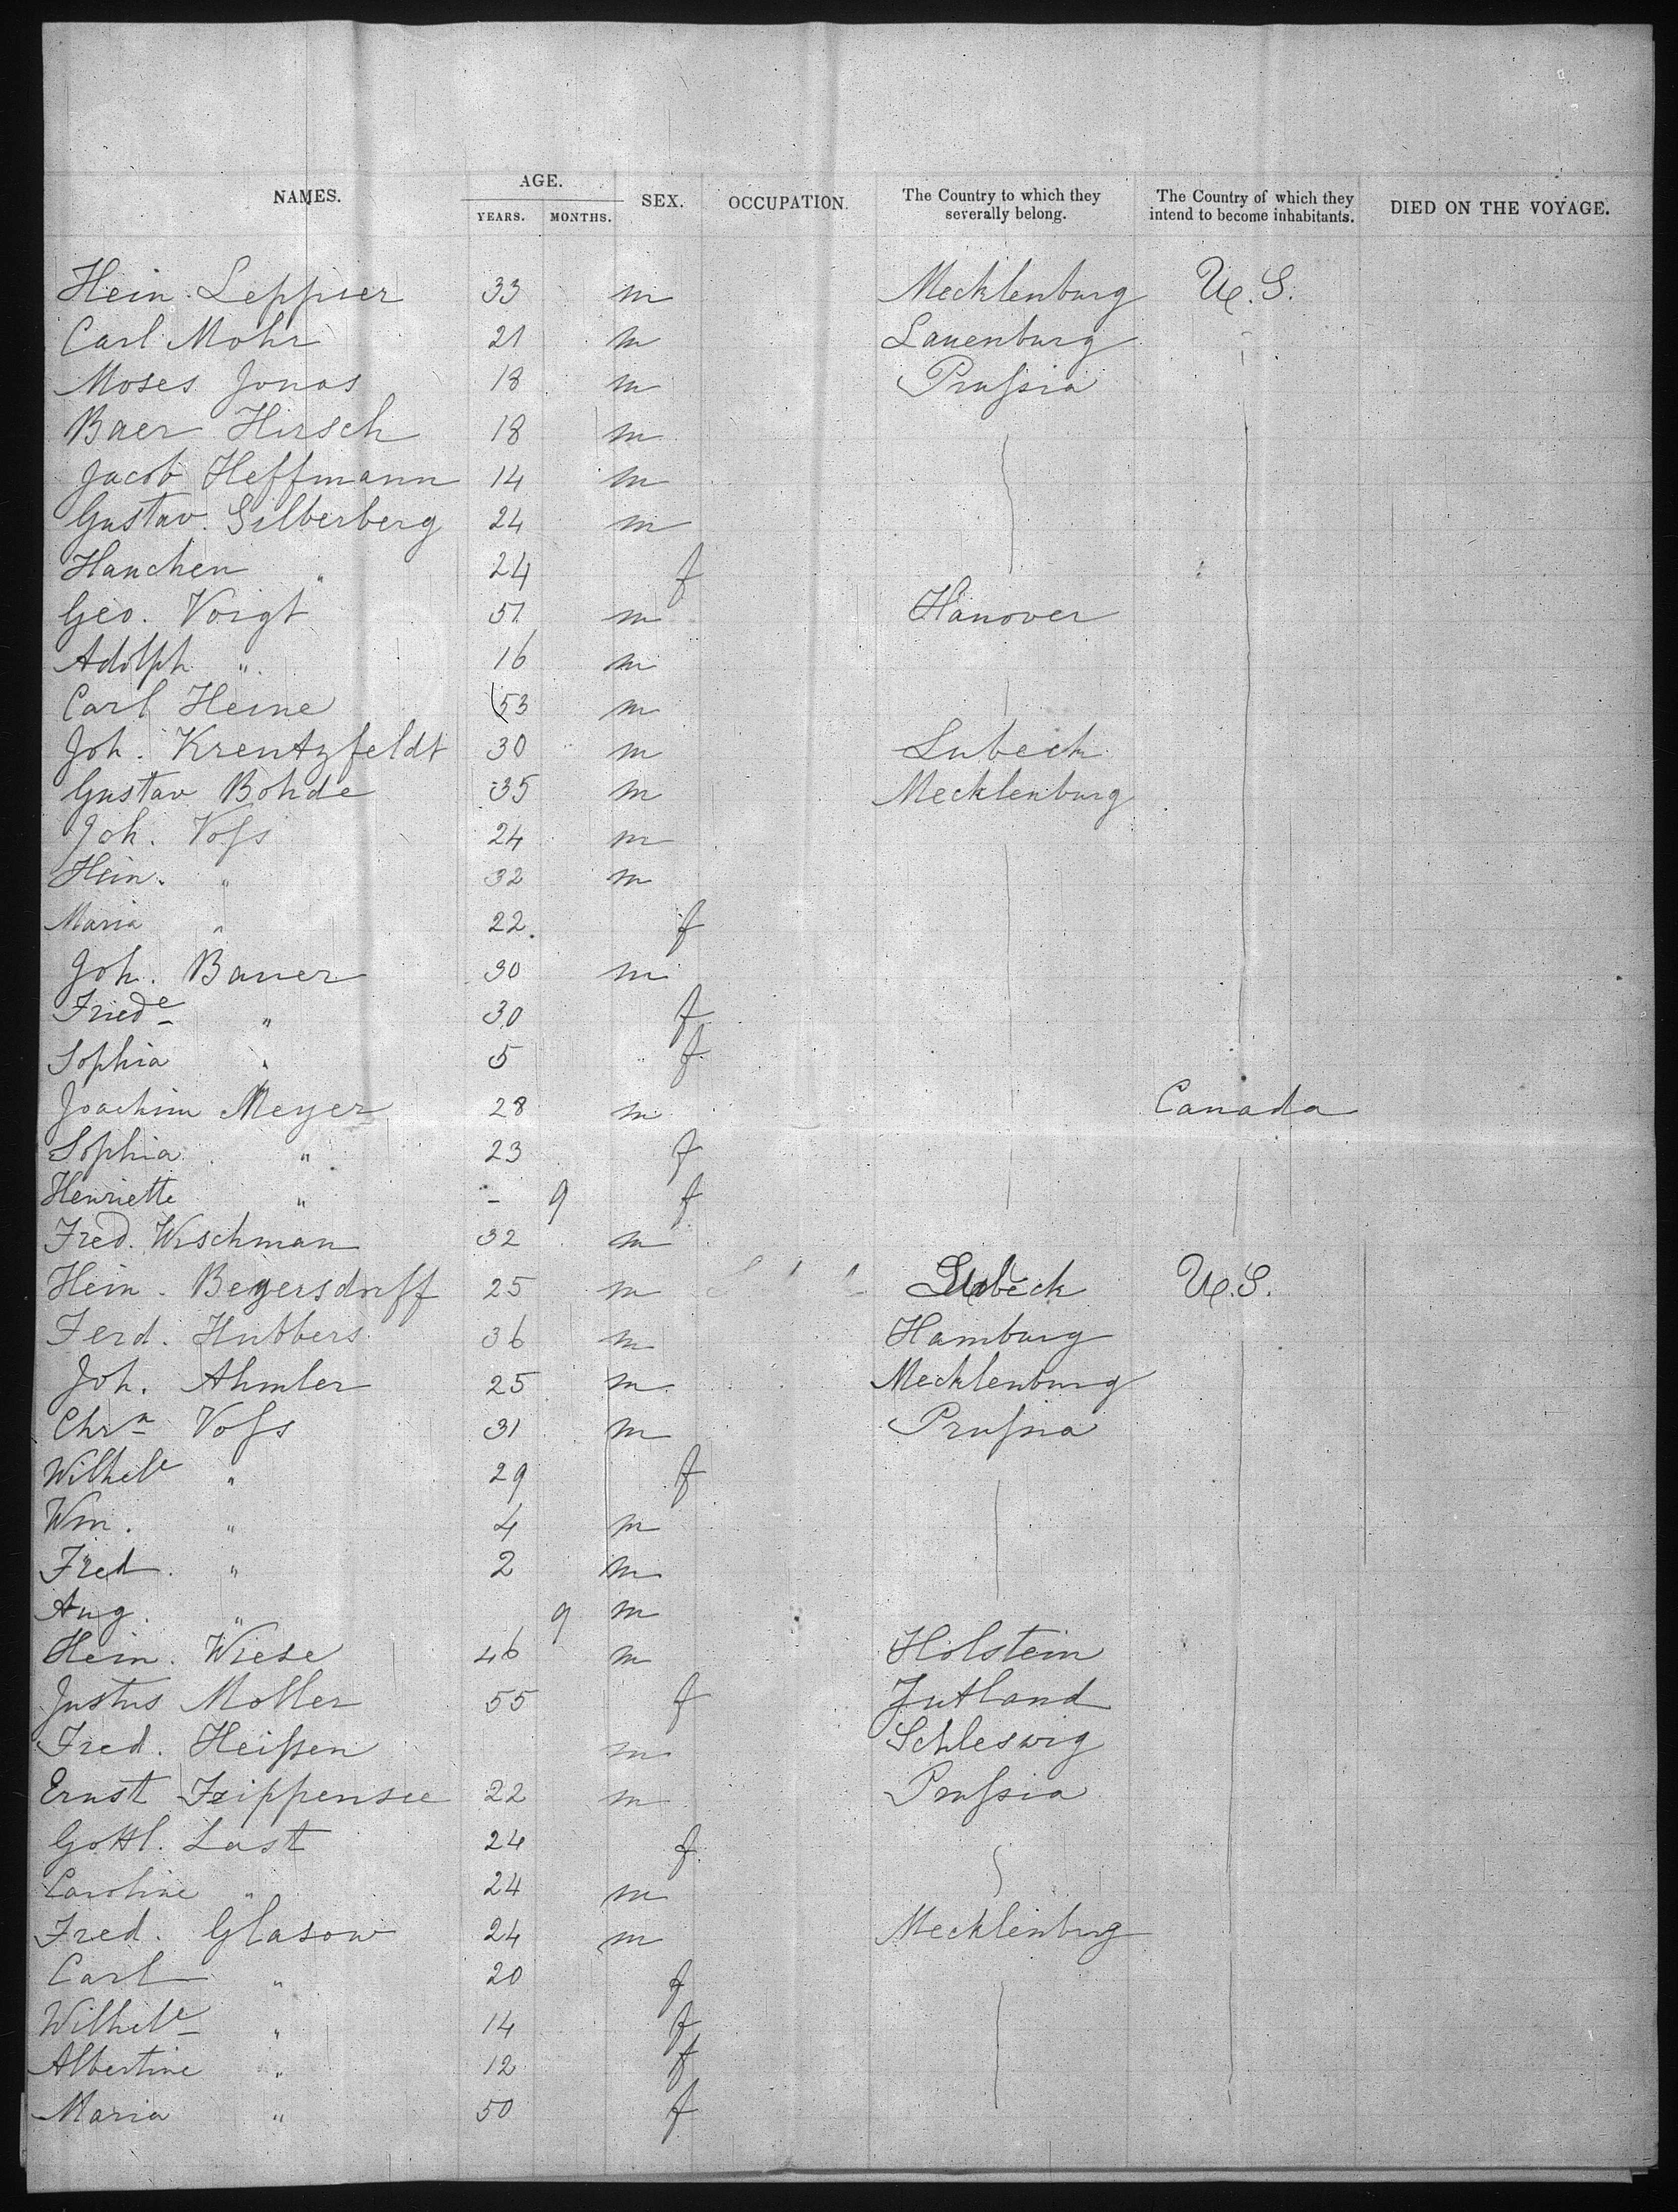 NAMES. AGE. YEARS. MONTHS. SEX. OCCUPATION. The Country to which they severally belong. The Country of which they intend to become inhabitants. DIED ON THE VOYAGE.
Hein. Leppier 33 m Mecklenburg U.S.
Carl Mohr 21 m Lauenburg
Moses Jonas 18 m Prussia
Baer Hirsch 18 m
Jacob Heffmann 14 m
Gustav. Silberberg 24 m
Hanchen " 24 f
Geo. Voigt 51 m Hanover
Adolph " 16 m
Carl Heine 53 m
Joh. Krentzfeldt 30 m Lubeck
Gustav Bohde 35 m Mecklenburg
Joh. Voss 24 m
Hein. " 32 m
Maria " 22 f
Joh. Bauer 30 m
Friede " 30 f
Sophia " 5 f
Joachim Meyer 28 m Canada
Sophia " 23 f
Henriette " - 9 f
Fred. Wischman 32 m
Hein. Beyersdorff 25 m Lubeck U.S.
Ferd. Hubbers 36 m Hamburg
Joh. Ahmler 25 m Mecklenburg
Chrn Voss 31 m Prussia
Wilhele " 29 f
Wm. " 4 m
Fred. " 2 m
Aug. " 9 m
Hein. Wiese 46 m Holstein
Justus Moller 55 f Jutland
Fred. Heissen m Schleswig
Ernst Fzippensee 22 m Prussia
Gottl. Last 24 f
Caroline " 24 m
Fred. Glasow 24 m Mecklenburg
Carl " 20 f
Wilhele " 14 f
Albertine " 12 f
Maria " 50 f